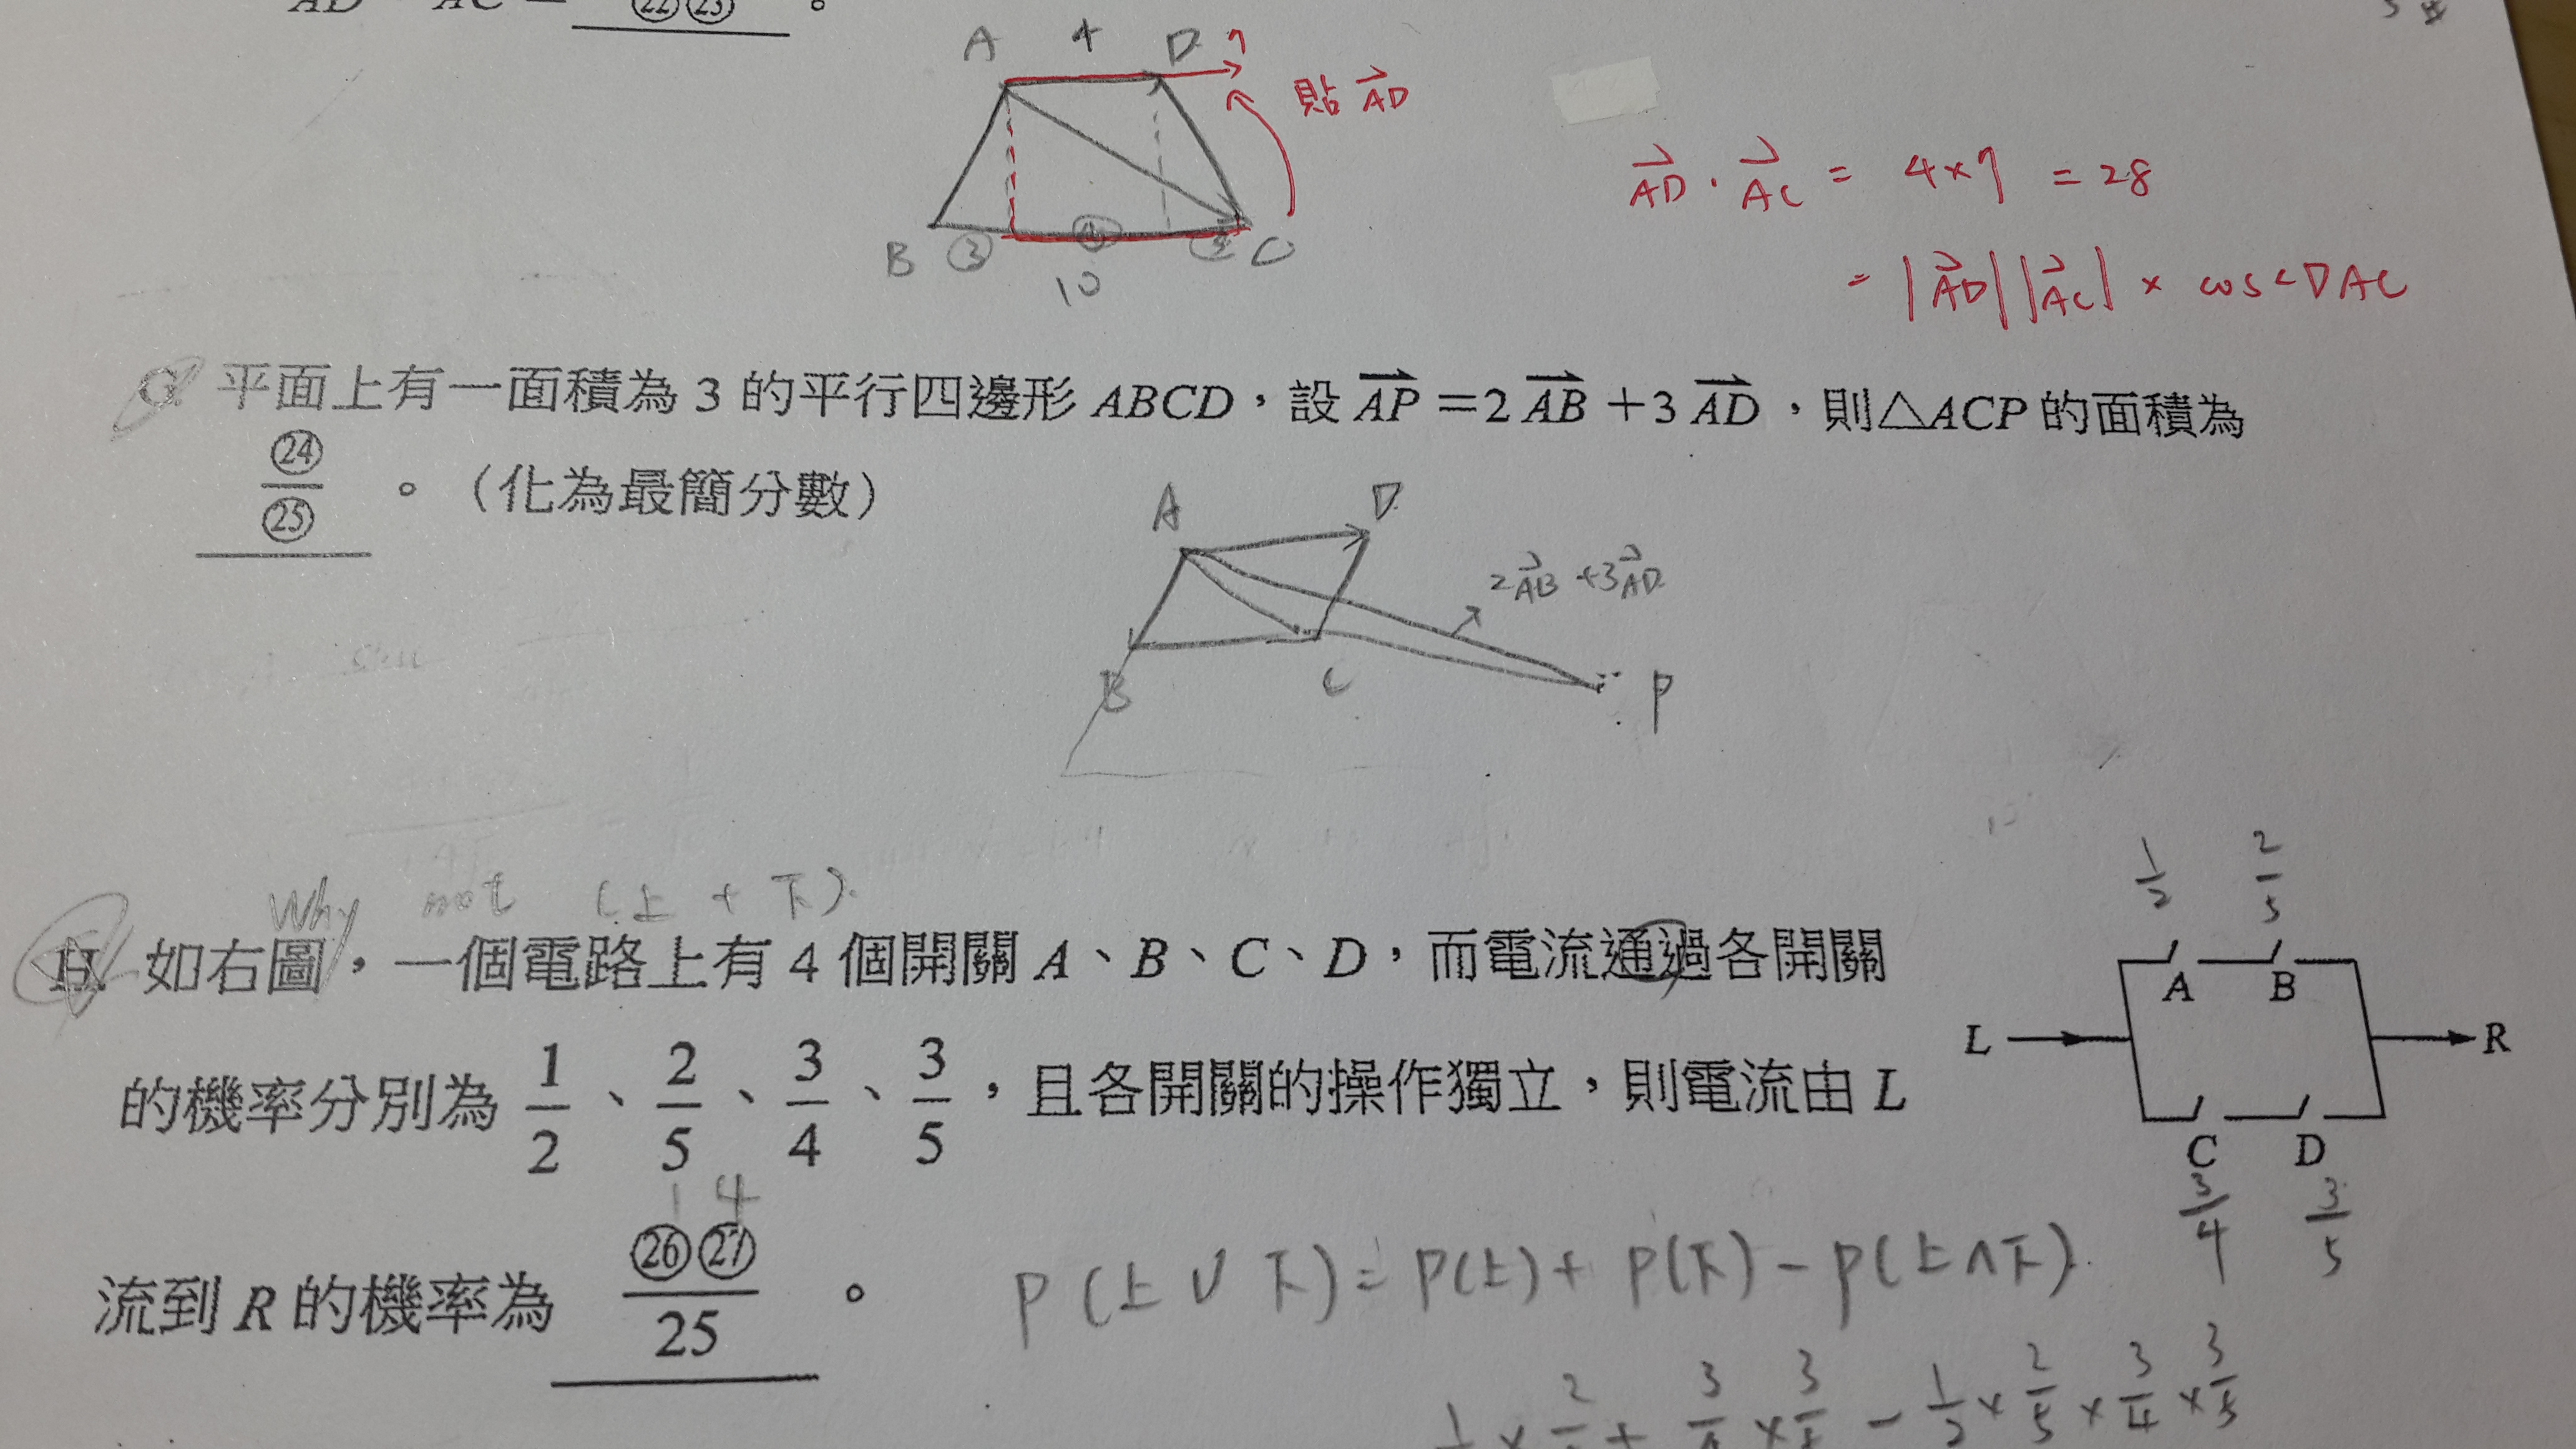 AD AC = ㉒㉓ 。
A 4 D 7
貼 AD
B ③ ④ ③ C
10
AD · AC = 4×7 = 28
= |AD||AC| × cos∠DAC
G. 平面上有一面積為 3 的平行四邊形 ABCD，設 AP =2 AB +3 AD ，則△ACP 的面積為
㉔/㉕ 。（化為最簡分數）
A D
2AB +3AD
B C P
Why not (上 + 下).
H. 如右圖，一個電路上有 4 個開關 A、B、C、D，而電流通過各開關
的機率分別為 1/2 、 2/5 、 3/4 、 3/5 ，且各開關的操作獨立，則電流由 L
1 4
流到 R 的機率為 ㉖㉗/25 。
1/2 2/5
A B
L R
C D
3/4 3/5
P(上∪下)= P(上)+ P(下)- P(上∩下).
× 2 + 3 × 3 - 1/2 × 2/5 × 3/4 × 3/5